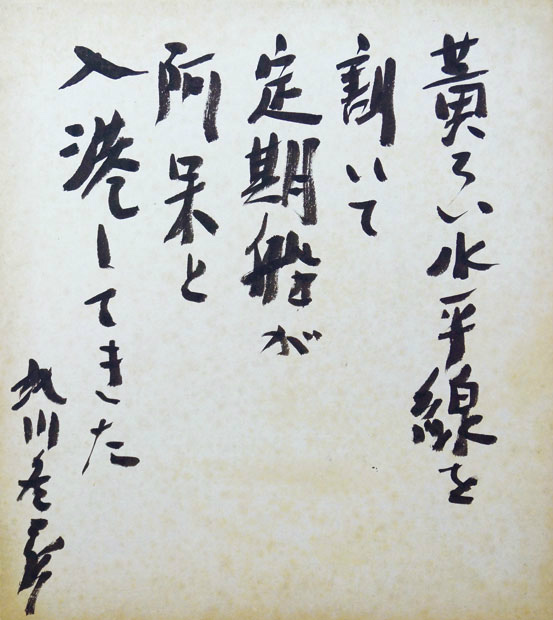 黄ろい水平線を
割いて
定期船が
阿呆と
入港してきた
北川冬彦